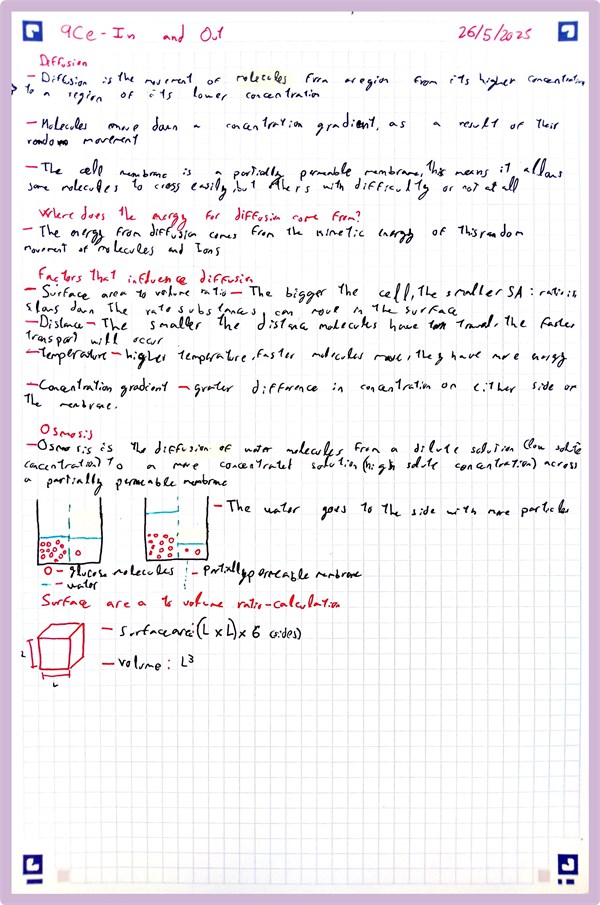 9Ce - In and Out 26/5/2025
Diffusion
- Diffusion is the movement of molecules from a region from its higher concentration
to a region of its lower concentration
- Molecules move down a concentration gradient, as a result of their
random movement
- The cell membrane is a partially permeable membrane, this means it allows
some molecules to cross easily, but others with difficulty or not at all
Where does the energy for diffusion come from?
- The energy from diffusion comes from the kinetic energy of this random
movement of molecules and Ions
Factors that influence diffusion
- Surface area to volume ratio - The bigger the cell, the smaller SA : ratio is
slows down the rate substances can move in the surface
- Distance - The smaller the distance molecules have to travel, the faster
transport will occur
- temperature - higher temperature, faster molecules move, they have more energy
- Concentration gradient - greater difference in concentration on either side of
the membrane.
Osmosis
- Osmosis is the diffusion of water molecules from a dilute solution (low solute
concentration) to a more concentrated solution (high solute concentration) across
a partially permeable membrane
- The water goes to the side with more particles
O - glucose molecules - partially permeable membrane
- water
Surface area to volume ratio - calculation
- Surface area: (L x L) x 6 (sides)
L
- volume: L³
L